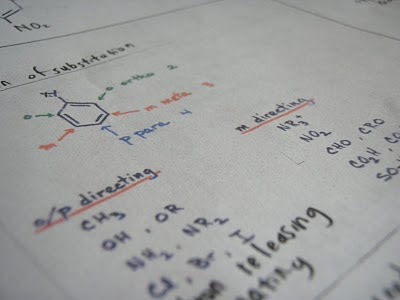 NO₂
n of substitution
XY
o ortho 2
o
m meta 3
m
p para 4
m directing
NR₃⁺
NO₂
CHO, CRO
CO₂H, CO
SO
o/p directing
CH₃
OH, OR
NH₂, NR₂
Cl, Br, I
releasing